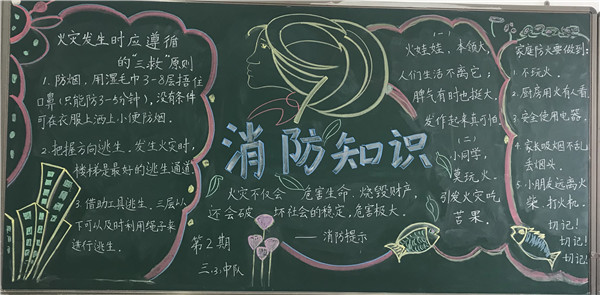 火灾发生时应遵循
的"三救"原则
1. 防烟,用湿毛巾3-8层捂住
口鼻(只能防3-5分钟),没有条件
可在衣服上洒上小便防烟.
2. 把握方向逃生,发生火灾时,
楼梯是最好的逃生通道
3. 借助工具逃生,三层以
下可以及时利用绳子来
进行逃生.
消防知识
火灾不仅会危害生命.烧毁财产,
还会破坏社会的稳定,危害极大.
——消防提示
第2期
三(3)中队
(一)
火娃娃,本领大,
人们生活不离它;
脾气有时也挺大,
发作起来真可怕.
(二)
小同学,
莫玩火.
引发火灾吃
苦果.
家庭防火要做到:
1 不玩火.
2. 厨房用火有人看.
3. 安全使用电器.
4. 家长吸烟不乱
丢烟头.
5. 小朋友远离火
柴、打火机.
切记!
切记!
切记!